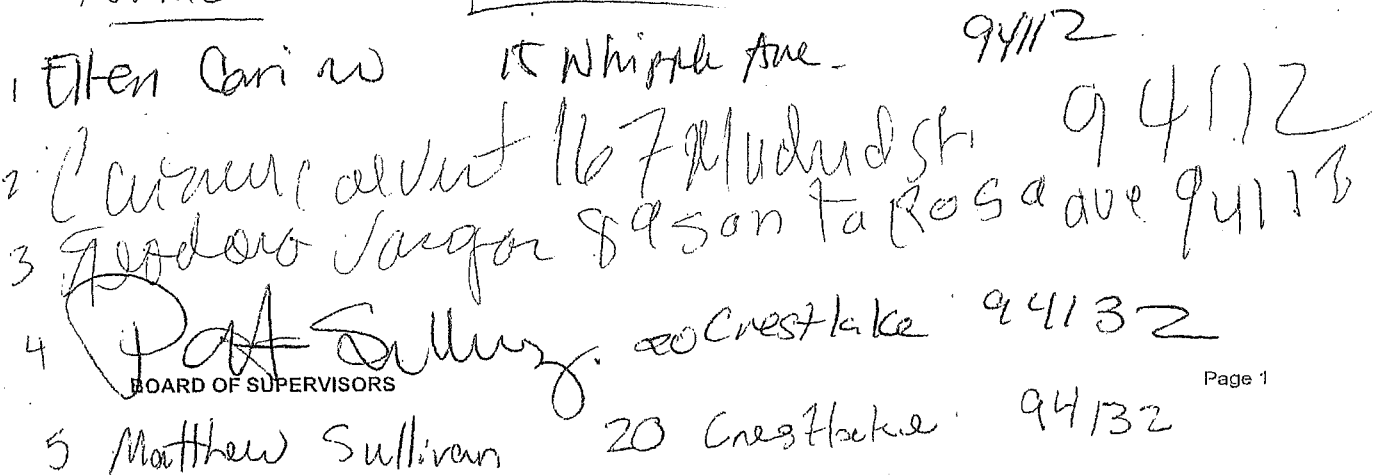 1 Ellen Carino 15 Whipple Ave. 94112
2 167 Madrid St. 94112
3 Teodoro Vargas 89 Santa Rosa ave 94112
4 Pat Sullivan 20 Crestlake 94132
BOARD OF SUPERVISORS Page 1
5 Matthew Sullivan 20 Crestlake 94132